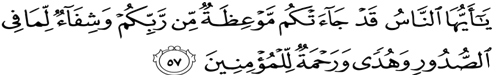 يَـٰٓأَيُّهَا ٱلنَّاسُ قَدْ جَآءَتْكُم مَّوْعِظَةٌ مِّن رَّبِّكُمْ وَشِفَآءٌ لِّمَا فِى
ٱلصُّدُورِ وَهُدًى وَرَحْمَةٌ لِّلْمُؤْمِنِينَ ٥٧